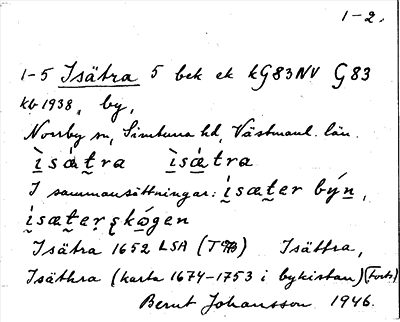 1-2.
1-5 Isätra 5 bek ek kG83NV G83
kb 1938, by,
Norrby sn, Simtuna hd, Västmanl. län.
ìsátra ìsátra
I sammansättningar: ísæter býn,
ísæter skógen
Isätra 1652 LSA (T) Isättra,
Isäthra (karta 1674-1753 i bykistan) (Forts)
Bernt Johansson 1946.